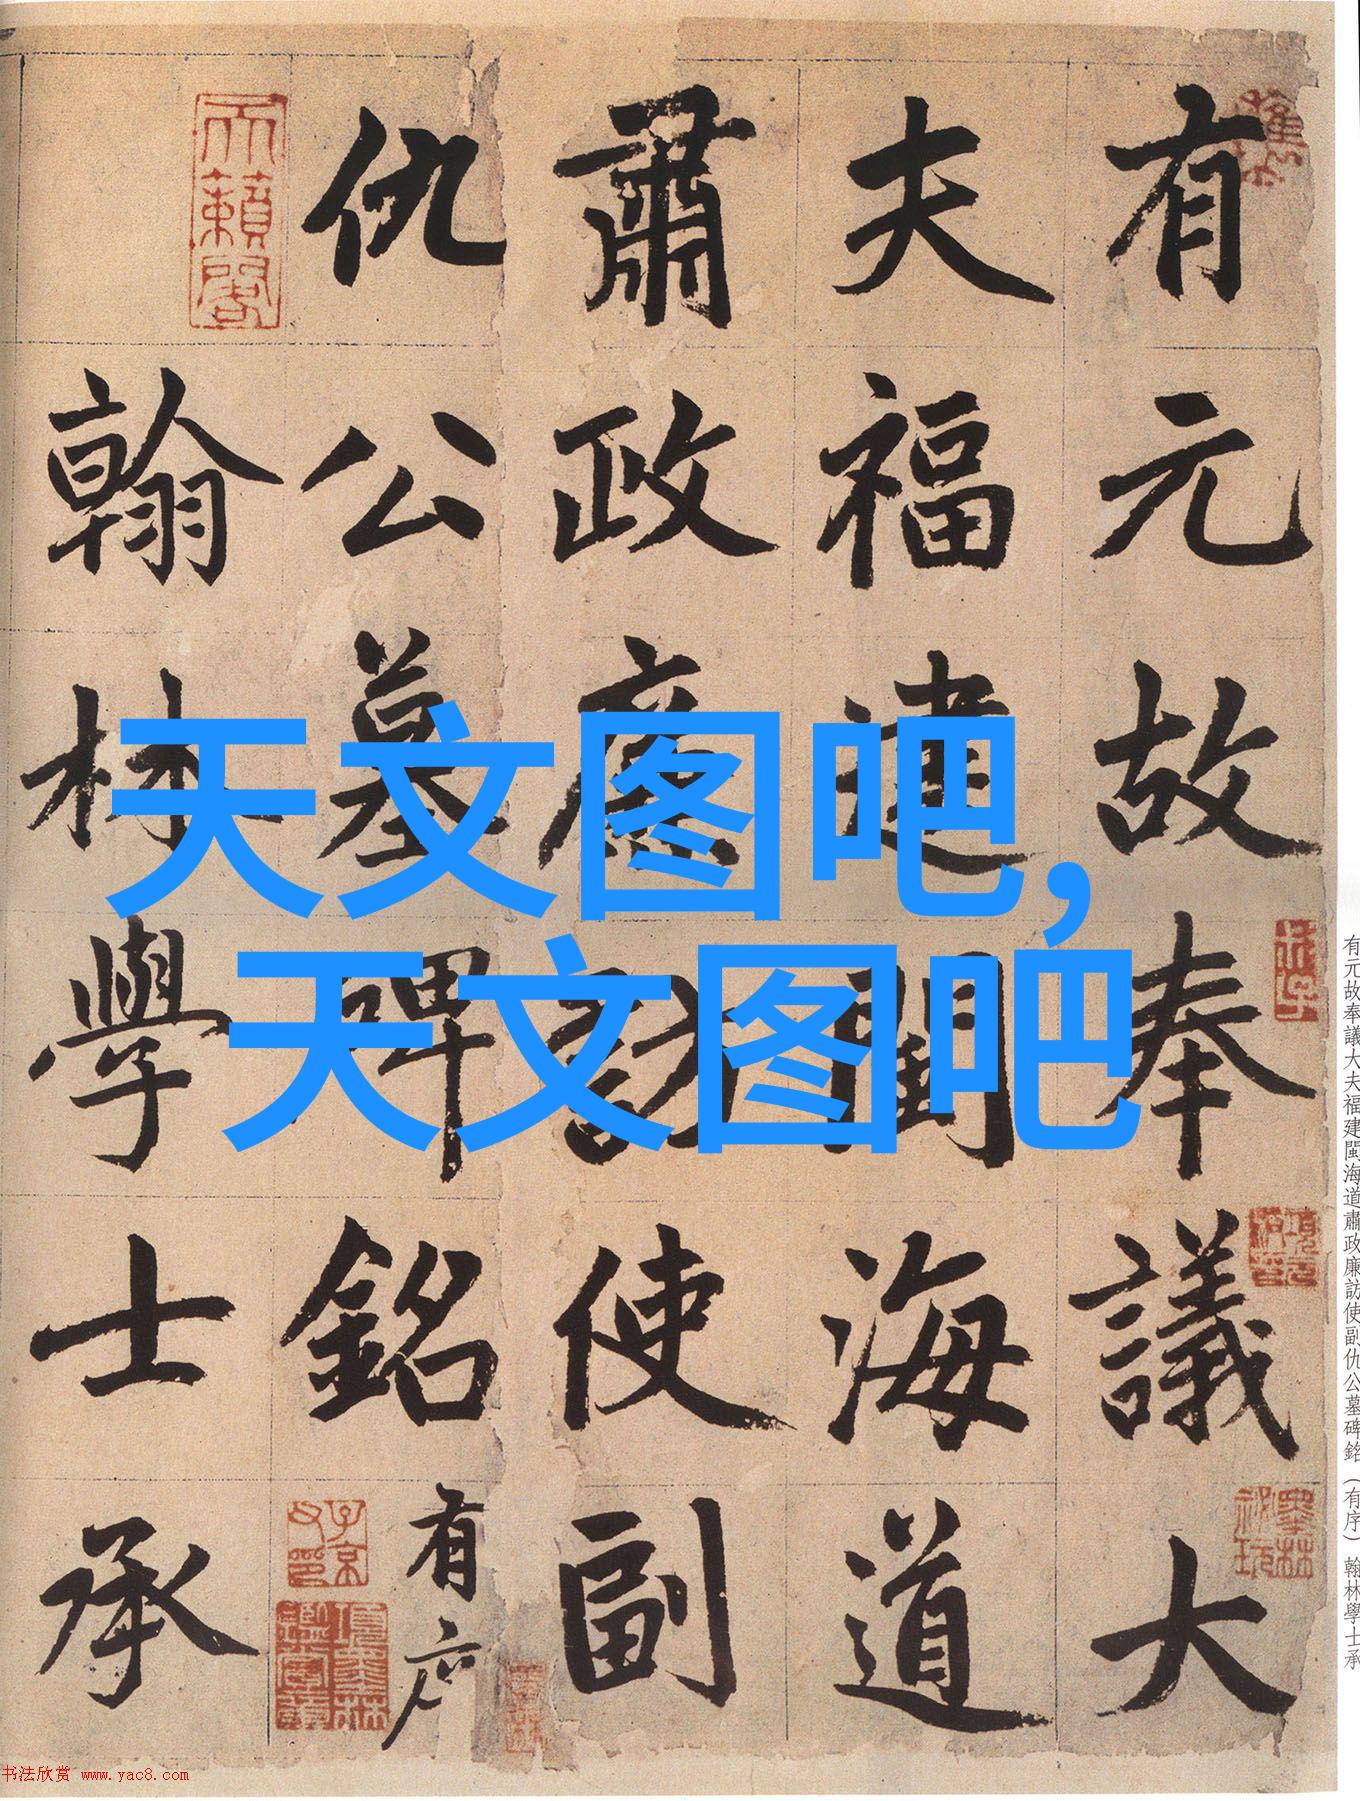 有元故奉議大
夫福建閩海道
肅政廉訪使副
仇公墓碑銘有序
翰林學士承
天籟閣
子京父印
天文图吧,
天文图吧
有元故奉議大夫福建閩海道肅政廉訪使副仇公墓碑銘(有序)翰林學士承
书法欣赏 www.yac8.com